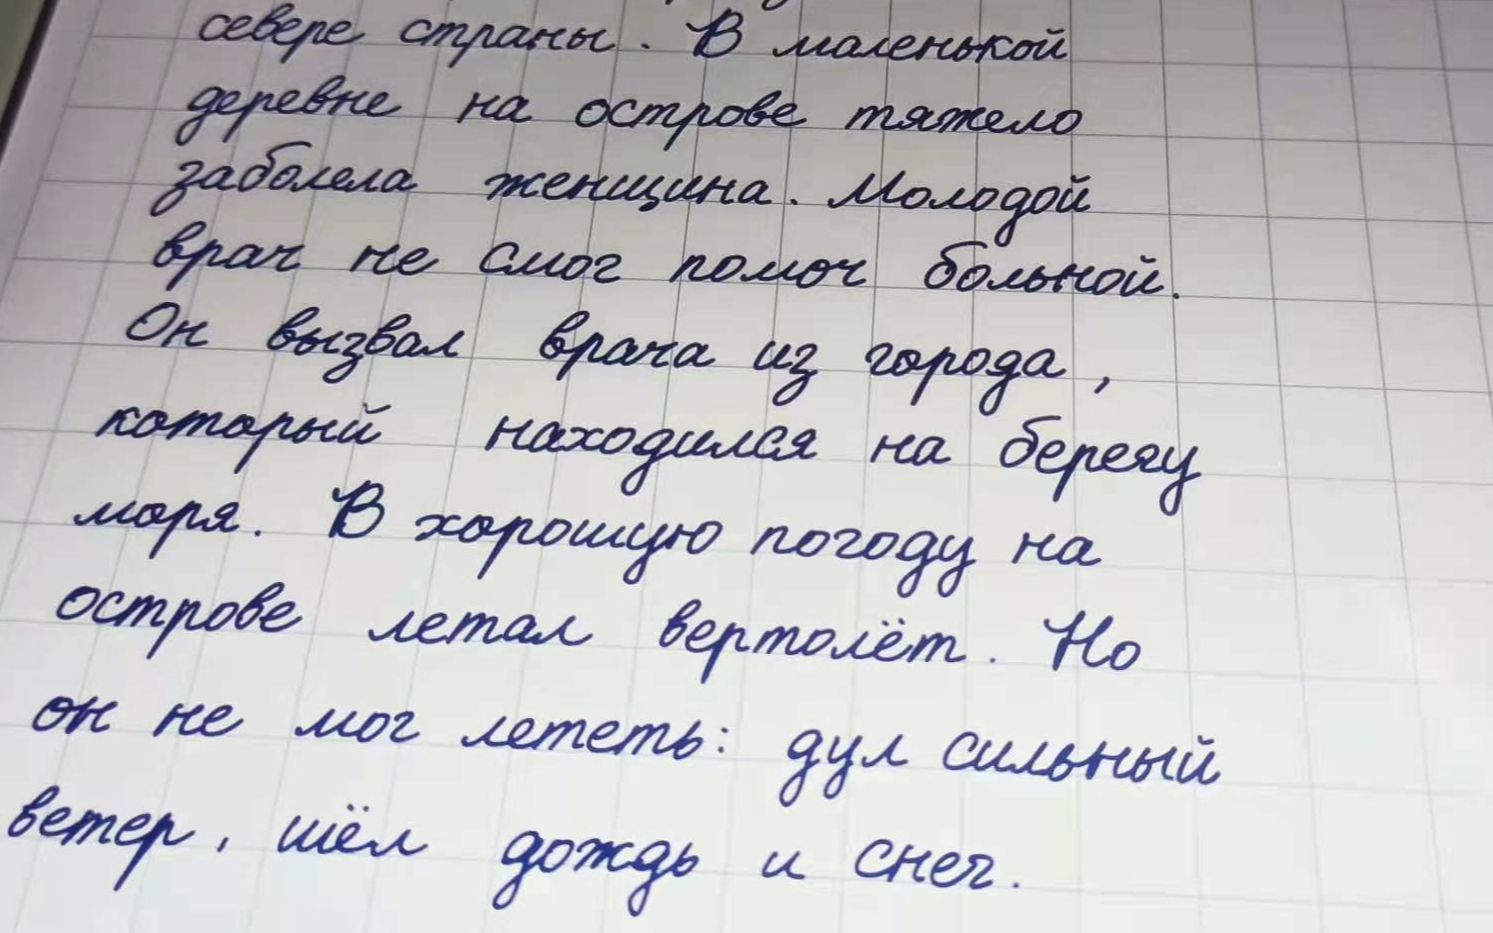 севере страны. В маленькой
деревне на острове тяжело
заболела женщина. Молодой
врач не смог помоч больной.
Он вызвал врача из города,
который находился на берегу
моря. В хорошую погоду на
острове летал вертолёт. Но
он не мог лететь: дул сильный
ветер, шёл дождь и снег.